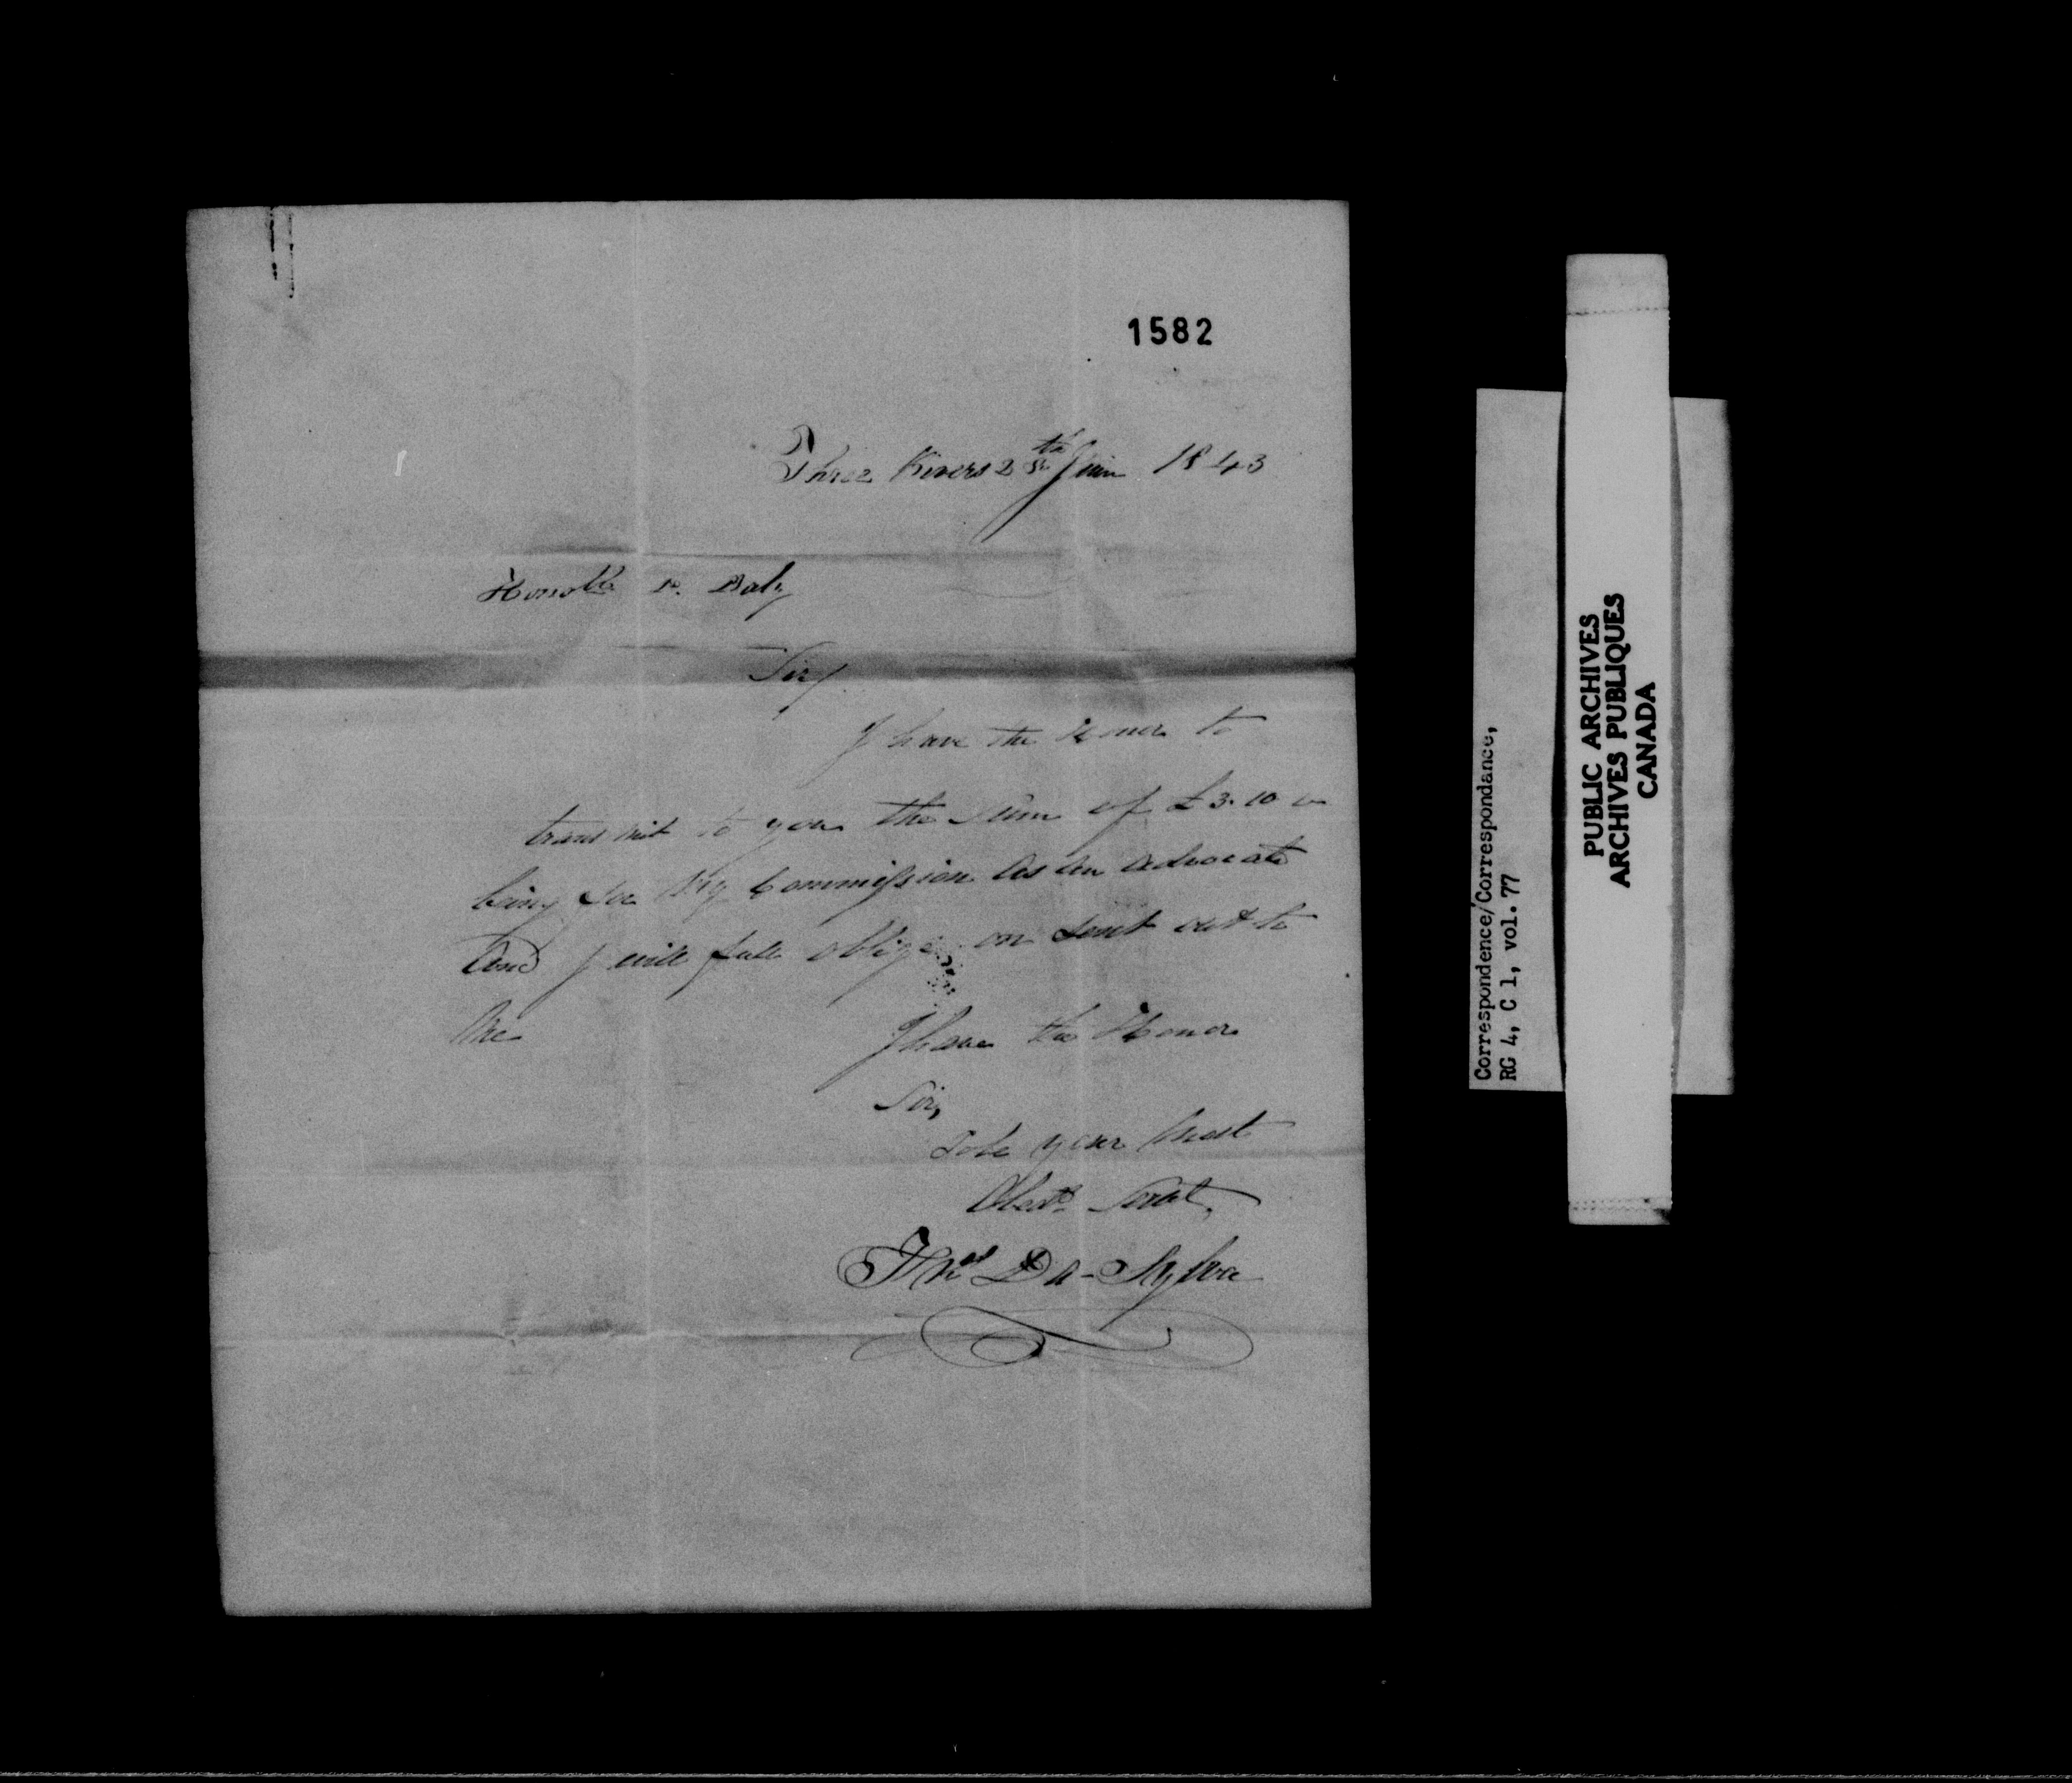 1582
Three Rivers 28th Juin 1843
Honoble D. Daly
Sir/
I have the Honor to
transmit to you the Sum of £3.10
being for My Commission as an advocate
And I will full oblige on sent out to
Me
I have the Honor
Sir,
To be your Most
Obedt Servt
Da-Sylva
Correspondence/Correspondance,
RG 4, C 1, vol. 77
PUBLIC ARCHIVES
ARCHIVES PUBLIQUES
CANADA